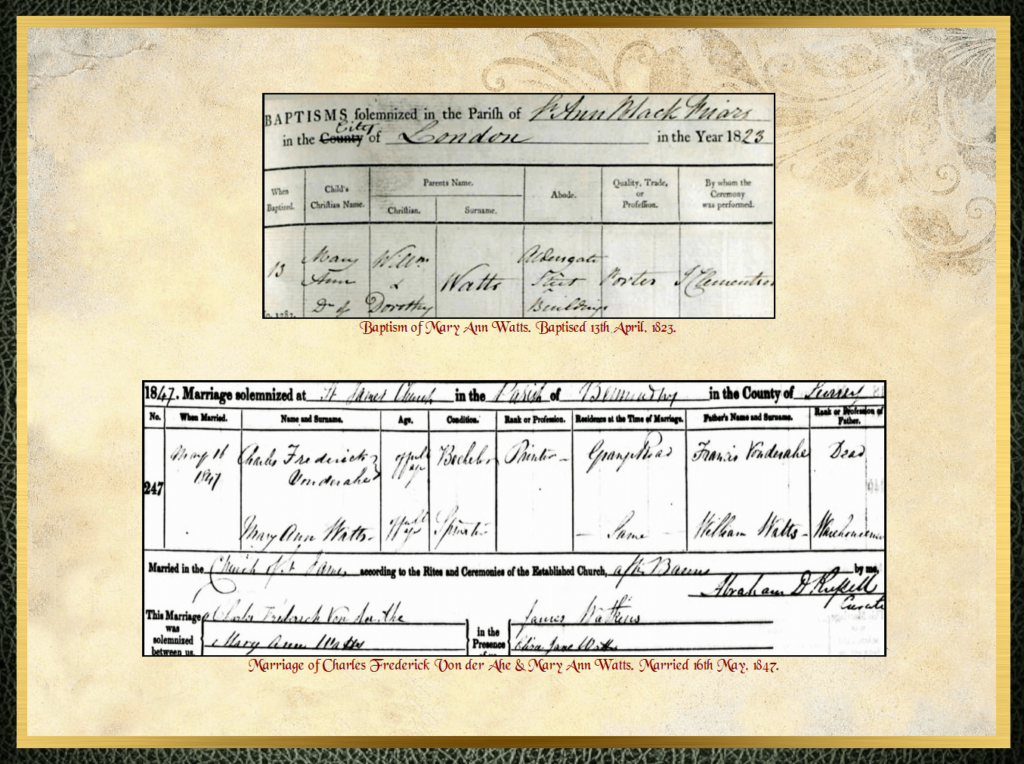 BAPTISMS solemnized in the Parish of St Ann Black Friars
in the County City of London in the Year 1823
When Baptized. Child's Christian Name. Parents Name. Abode. Quality, Trade, or Profession. By whom the Ceremony was performed.
Christian. Surname.
13 Mary Ann Dr of Willm & Dorothy Watts Aldersgate Street Buildings Porter
Baptism of Mary Ann Watts. Baptised 13th April, 1823.
1847. Marriage solemnized at St James Church in the Parish of Bermondsey in the County of Surrey
No. When Married. Name and Surname. Age. Condition. Rank or Profession. Residence at the Time of Marriage. Father's Name and Surname. Rank or Profession of Father.
247 May 16 1847 Charles Frederick Vonderahe of full age Bachelor Printer Grange Road Francis Vonderahe Dead
Mary Ann Watts of full age Spinster Same William Watts Warehouseman
Married in the Church of St James according to the Rites and Ceremonies of the Established Church, after Banns by me,
Abraham D Russell
Curate
This Marriage was solemnized between us, Charles Frederick Von der Ahe
Mary Ann Watts
in the Presence of us, James
Eliza Jane
Marriage of Charles Frederick Von der Ahe & Mary Ann Watts. Married 16th May, 1847.